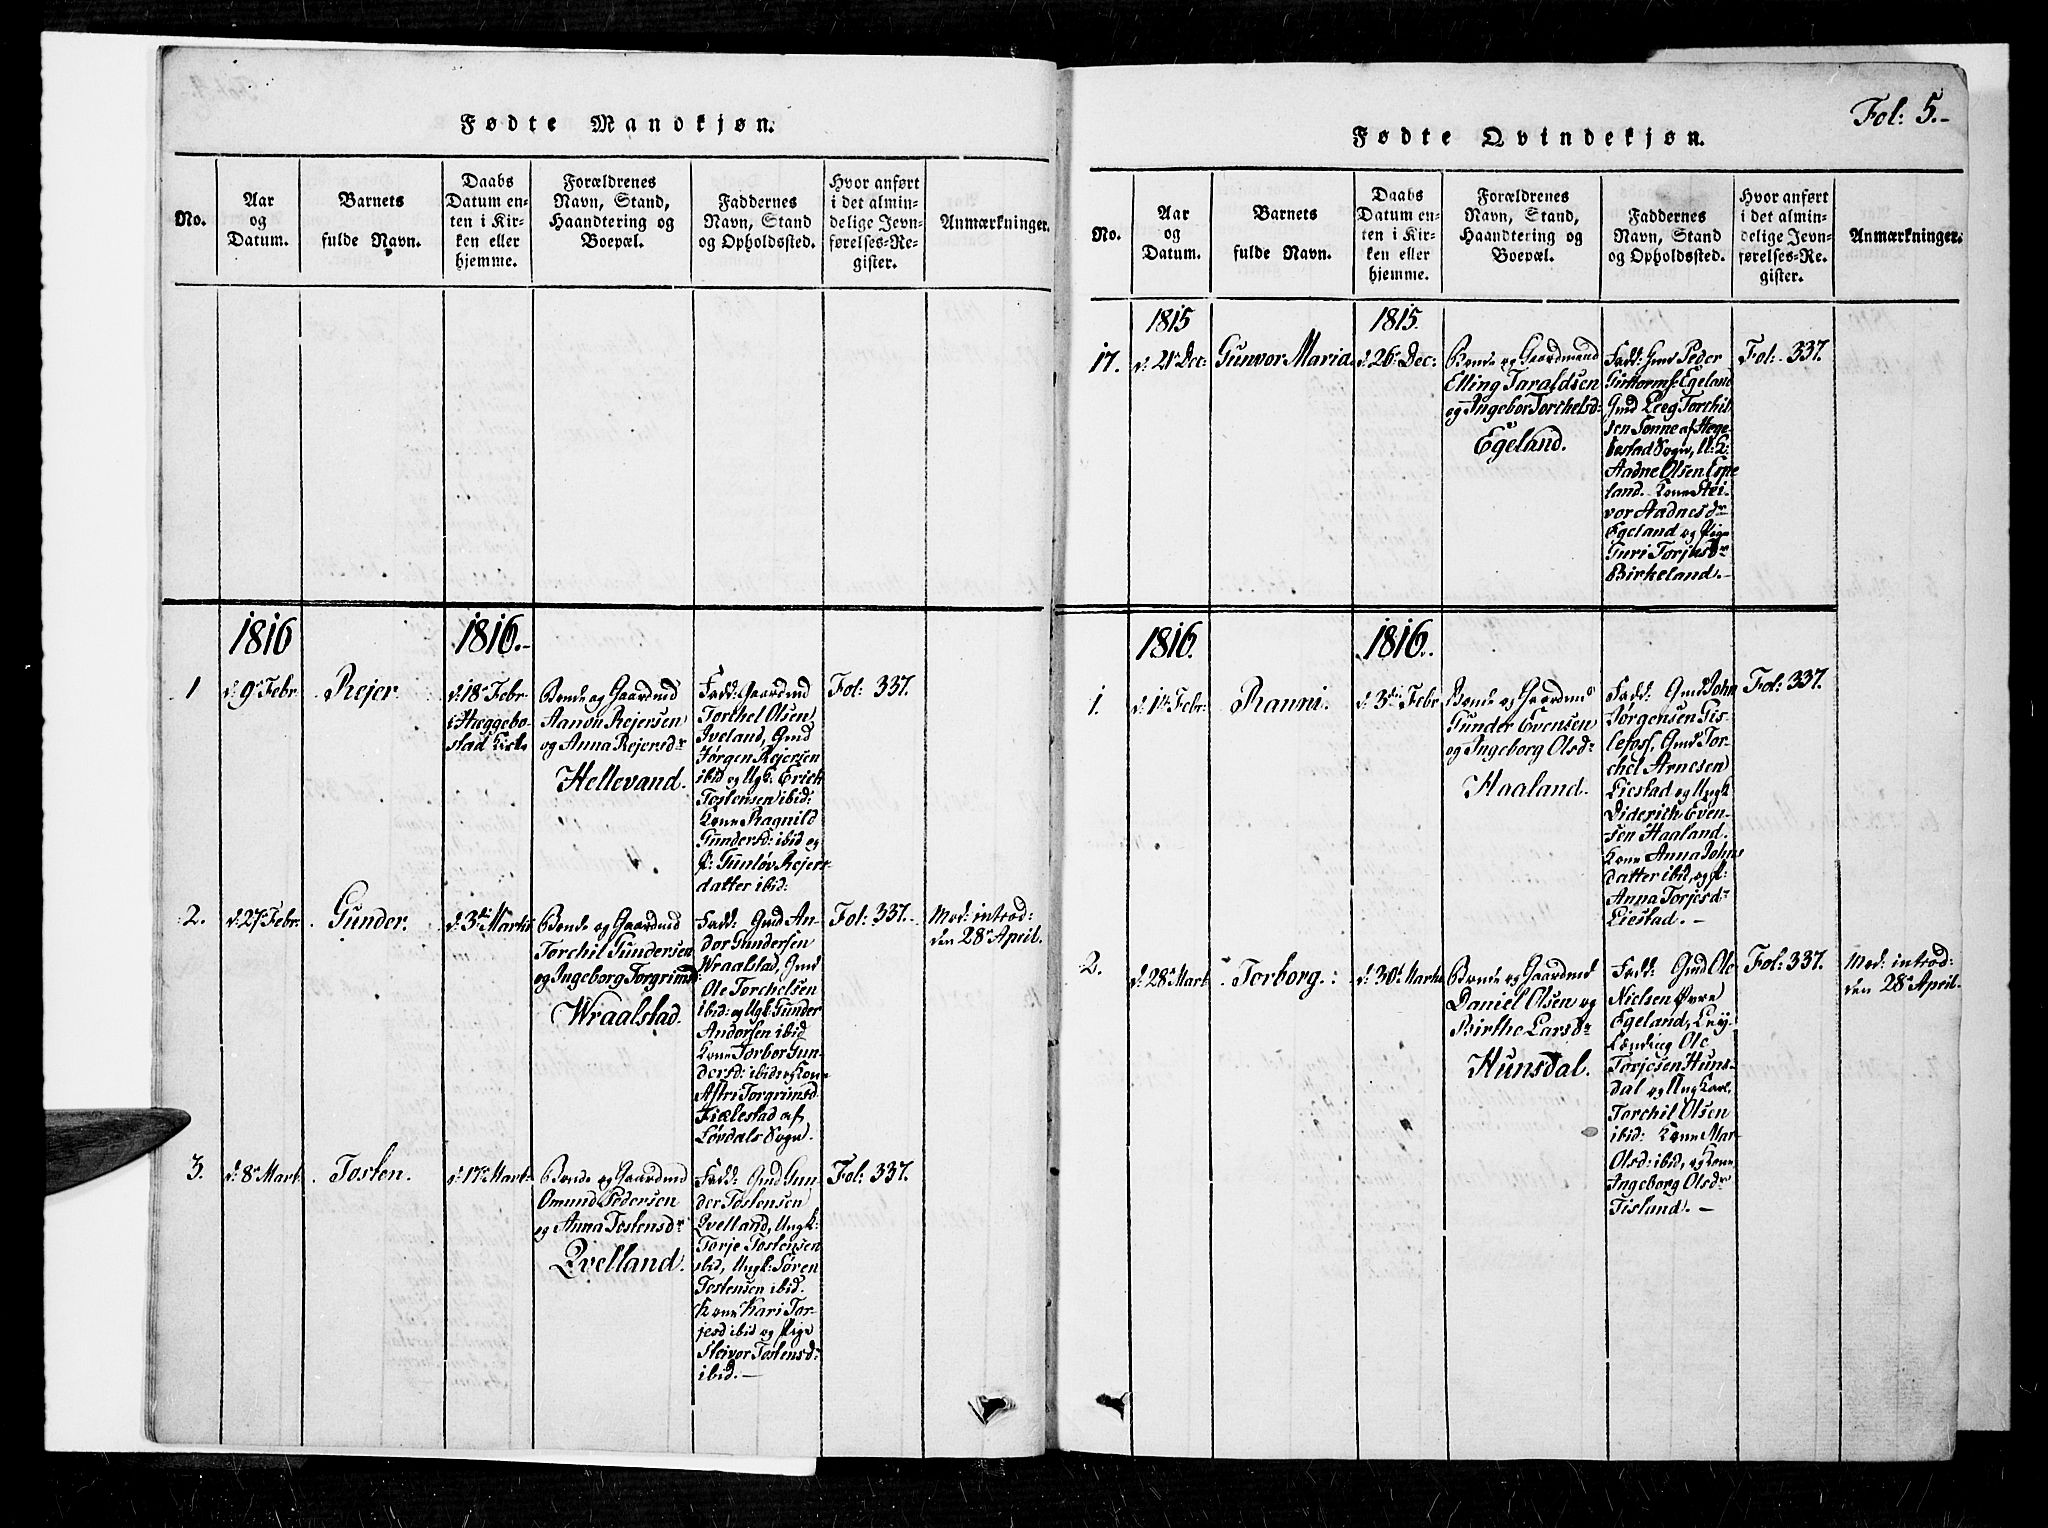 Fødte Mandkjøn.
No.
Aar
og
Datum.
Barnets
fulde Navn.
Daabs
Datum en-
ten i Kir-
ken eller
hjemme.
Forældrenes
Navn, Stand,
Haandtering og
Boepæl.
Faddernes
Navn, Stand
og Opholdssted.
Hvor anført
i det almin-
delige Jevn-
førelses-Re-
gister.
Anmærkninger.
1816
1816.-
1
d: 9de Febr
Rejer
d: 18de Febr
i Hæggebo-
stad Kirke
Bonde og Gaardmd
Aanon Rejersen
og Anna Rejersdr
Hellevand.
Fadd: Gaardmd
Torchel Olsen
Iveland, Gmd
Jørgen Rejersen
ibid og Ugk: Erick
Tostensen ibid:
Kone Ragnild
Gundersd: ibid og
P: Gunløv Rejers
datter ibid:
Fol: 337.
2.
d: 27de Febr.
Gunder.
d: 3die Martii
Bonde og Gaardmd
Torchil Gundersen
og Ingeborg Torgrimsd
Wraalstad.
Fadd: Gmd An-
dor Gundersen
Wraalstad, Gmd
Ole Torchelsen
ibid: og Ugk: Gunder
Andorsen ibid
Kone Torbor Gun-
dersd: ibid og Kone
Astri Torgrimsd
Fiælestad af
Løvdals Sogn.
Fol: 337.-
Mod: introd:
den 28de April.
3.
d: 8de Mart:
Tosten.
d: 17de Mart:
Bonde og Gaardmd
Omund Pedersen
og Anna Tostensdr
Qvelland.
Fadd: Gmd Gun-
der Tostensen
Qvelland, Ungk:
Torje Tostensen
ibid, Ungk: Søren
Tostensen ibid.
Kone Kari Tor-
jesd ibid og Pige
Steivor Tostensd:
ibid.-
Fol: 337.
Fol: 5.-
Fødte Qvindekjøn.
No.
Aar
og
Datum.
Barnets
fulde Navn.
Daabs
Datum en-
ten i Kir-
ken eller
hjemme.
Forældrenes
Navn, Stand,
Haandtering og
Boepæl.
Faddernes
Navn, Stand
og Opholdssted.
Hvor anført
i det almin-
delige Jevn-
førelses-Re-
gister.
Anmærkninger.
1815
1815.
17.
d: 21de Dec:
Gunvor Maria.
d: 26de Dec:
Bonde og Gaardmand
Elling Taraldsen
og Ingebor Torchelsd:
Egeland.
Fadd: Gmd Peder
Egeland
Gmd Leeg Torchil-
sen Sonne af Hæge-
bostad Sogn, U: K:
Aadne Olsen Espe
land.- Kone Stei-
vor Aadnesdr
Egeland og Pige
Guri Torjusdr
Birkeland.-
Fol: 337.
1816.
1816.
1.
d: 1ste Febr:
Ranni.
d: 3die Febr
Bonde og Gaardmd
Gunder Evensen
og Ingeborg Olsdr
Haaland.
Fadd: Gmd John
Jørgensen Fis-
lefoss, Gmd Tor-
chel Arnesen
Liestad og Ungk
Diderich Even-
sen Haaland.
Kone Anna Johns
datter ibid, og P:
Anna Torjesdr
Liestad.-
Fol: 337.
2.
d: 28de Mart:
Torborg.:
d: 30te Martii
Bonde og Gaardmd
Daniel Olsen og
Birthe Larsdr
Hunsdal.
Fadd: Gmd Ole
Nielsen Øvre
Egeland, Leij-
Lænding Ole
Torjesen Huns-
dal og Ung Karl
Torchil Olsen
ibid: Kone Mar-
Olsd: ibid, og Kone
Ingeborg Olsdr
Tisland.-
Fol: 337.
Mod: introd:
den 28de April.